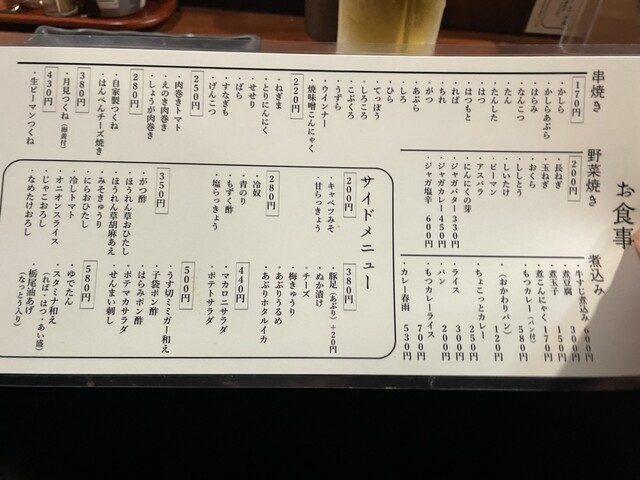 お食事
串焼き
170円
・かしら
・かしらあぶら
・はらみ
・なんこつ
・たん
・たんした
・はつ
・はつもと
・れば
・ちれ
・がつ
・あぶら
・しろ
・ひら
・てっぽう
・しろころ
・こぶくろ
・うずら
・ウインナー
・焼味噌こんにゃく
220円
・ねぎま
・とりにんにく
・せせり
・ぼら
・すなぎも
・げんこつ
250円
・肉巻きトマト
・えのき肉巻き
・しょうが肉巻き
・自家製つくね
・はんぺんチーズ焼き
380円
・月見つくね(卵黄付)
430円
・生ピーマンつくね
野菜焼き
200円
・長ねぎ
・玉ねぎ
・おくら
・ししとう
・しいたけ
・ピーマン
・アスパラ
・にんにくの芽
・ジャガバター 330円
・ジャガカレー 450円
・ジャガ塩辛 600円
煮込み
・牛すじ煮込み 600円
・煮豆腐 300円
・煮玉子 150円
・煮こんにゃく 170円
・もつカレー(パン付) 580円
(おかわりパン) 120円
・ちょこっとカレー 250円
・ライス 300円
・パン 200円
・もつカレーライス 700円
・カレー春雨 530円
サイドメニュー
200円
・キャベツみそ
・甘らっきょう
280円
・冷奴
・青のり
・もずく酢
・塩らっきょう
350円
・がつ酢
・ほうれん草おひたし
・ほうれん草胡麻あえ
・みそきゅうり
・にらおひたし
・冷しトマト
・オニオンスライス
・じゃこおろし
・なめたけおろし
380円
・豚足(あぶり)+20円
・ぬか漬け
・チーズ
・梅きゅうり
・あぶりうるめ
・あぶりホタルイカ
440円
・マカロニサラダ
・ポテトサラダ
500円
・うす切ミミガー和え
・子袋ポン酢
・はらみポン酢
・ポテマカサラダ
・せんまい刺し
580円
・ゆでたん
・スタミナ和え
(ればっはつ・あい盛)
・栃尾油あげ
(なっとう入り)